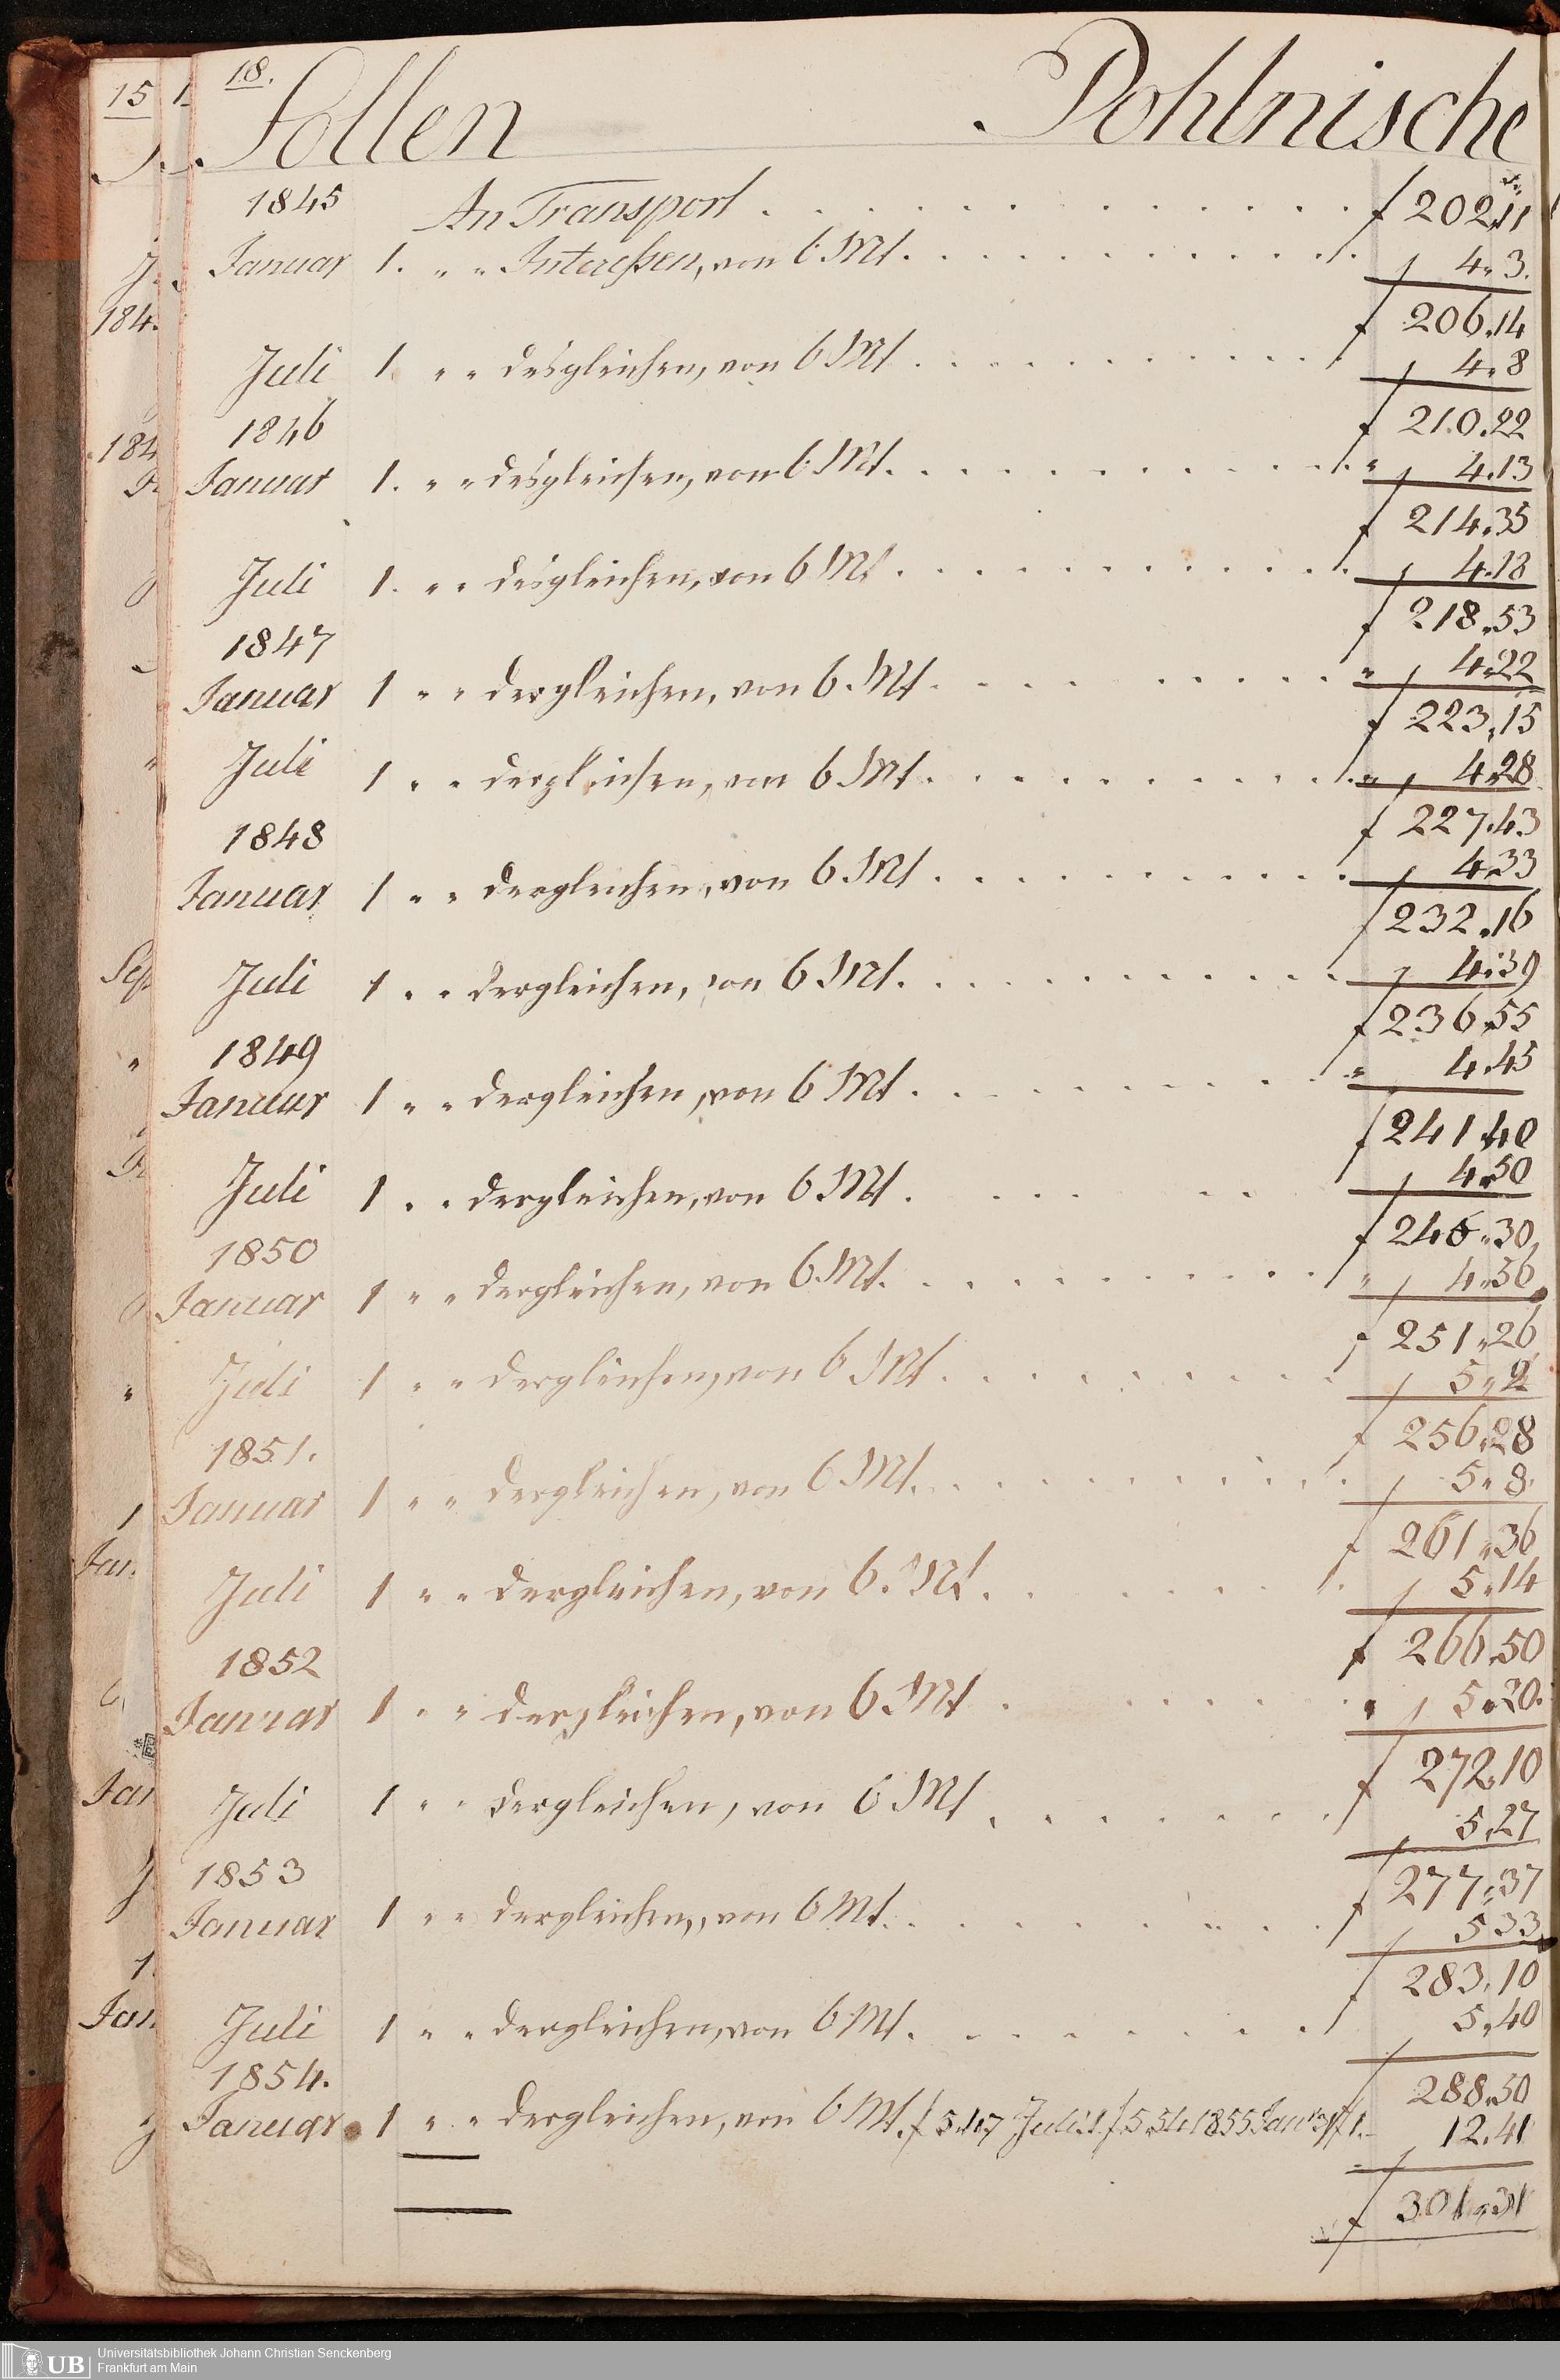 18.
Sollen Pohlnische
1845 An Transport . . . . . . . . . . . . f 202,,11
Januar 1. " " Interessen, von 6 Mt. . . . . . . . . . . . . f 4,,3.
f 206,,14
Juli 1. " " desgleichen, von 6 Mt . . . . . . . . . . . f 4,,8
1846
f 210.22
Januar 1. " " desgleichen, von 6 Mt. . . . . . . . . . . . " f 4.13
f 214.35
Juli 1. " " desgleichen, von 6 Mt . . . . . . . . . . . f 4.18
1847
f 218,,53
Januar 1 " " dergleichen, von 6. Mt. . . . . . . . . . " f 4,,22
f 223,15
Juli 1 " " dergleichen, von 6 Mt. . . . . . . . . . . " f 4,,28
1848
f 227,,43
Januar 1 " " dergleichen, von 6 Mt . . . . . . . . . . . f 4,,33
f 232,,16
Juli 1 " " dergleichen, von 6 Mt. . . . . . . . . . . . f 4,,39
1849
f 236,,55
Januar 1 " " dergleichen, von 6 Mt . . . . . . . . . " 4.45
f 241,,40
Juli 1 " " dergleichen, von 6 Mt . . . . . . f 4,,50
1850
f 246,,30
Januar 1 " " dergleichen, von 6 Mt. . . . . . . . . . . . " f 4,,56
f 251,,26
Juli 1 " " dergleichen, von 6 Mt . . . . . . . . . f 5,,2
1851.
f 256,,28
Januar 1 " " dergleichen, von 6 Mt. . . . . . . . . . . . f 5,,8.
f 261,,36
Juli 1 " " dergleichen, von 6. Mt. . . . . . . . f 5,,14
1852
f 266,,50
Januar 1 " " dergleichen, von 6 Mt . . . . . . . " f 5,,20.
f 272,,10
Juli 1 " " dergleichen, von 6 Mt . . . . . . . f 5,,27
1853
f 277,,37
Januar 1 " " dergleichen, von 6 Mt. . . . . . . . . . f 5 33
f 283,,10
Juli 1 " " dergleichen, von 6 Mt. . . . . . . . f 5,,40
1854.
288,,50
Januar 1 " " dergleichen, von 6 Mt. f 5,,47 Juli 1 f 5 54 1855 f 1. f 12,,41
f 301,,31
15
184
184
Jan.
Jan
Universitätsbibliothek Johann Christian Senckenberg
Frankfurt am Main
UB